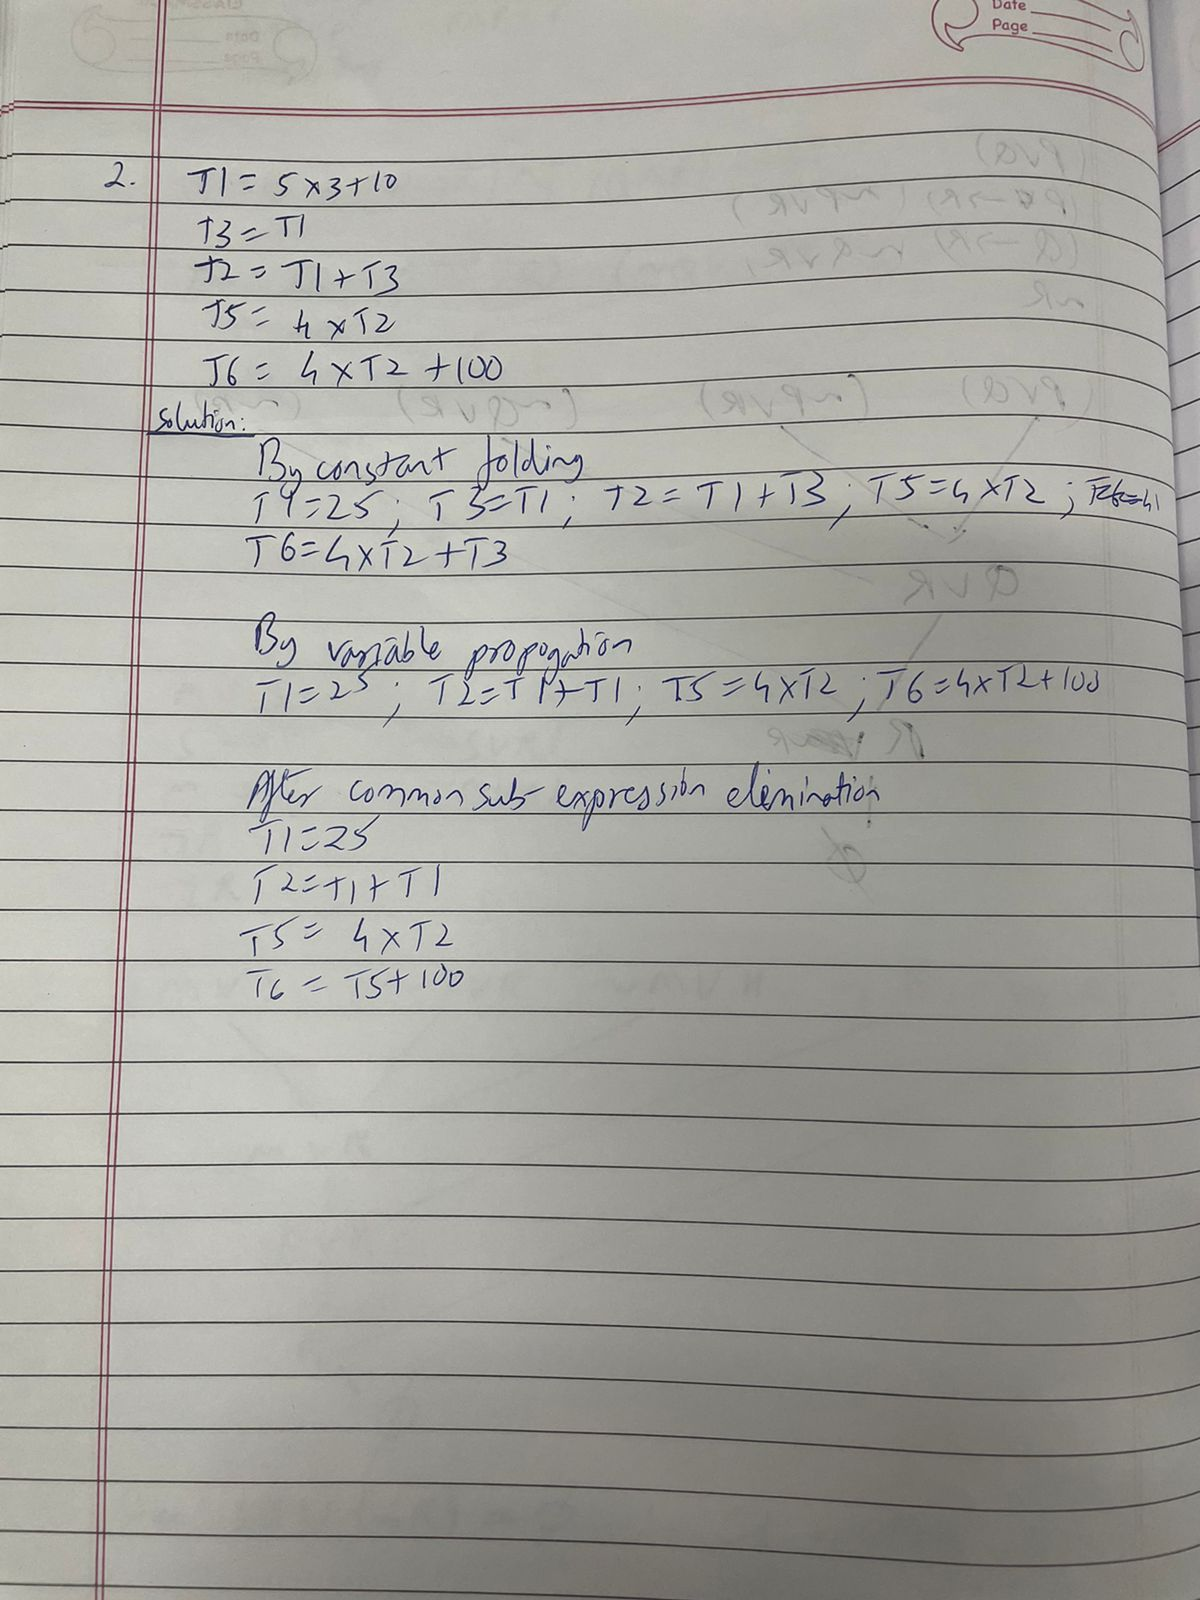 Date
Page
2. T1 = 5×3+10
T3 = T1
T2 = T1+T3
T5 = 4×T2
T6 = 4×T2 +100
Solution:
By constant folding
T1=25; T3=T1; T2=T1+T3; T5=4×T2;
T6=4×T2+T3
By variable propogation
T1=25; T2=T1+T1; T5=4×T2; T6=4×T2+100
After common sub-expression elimination
T1=25
T2=T1+T1
T5= 4×T2
T6 = T5+100